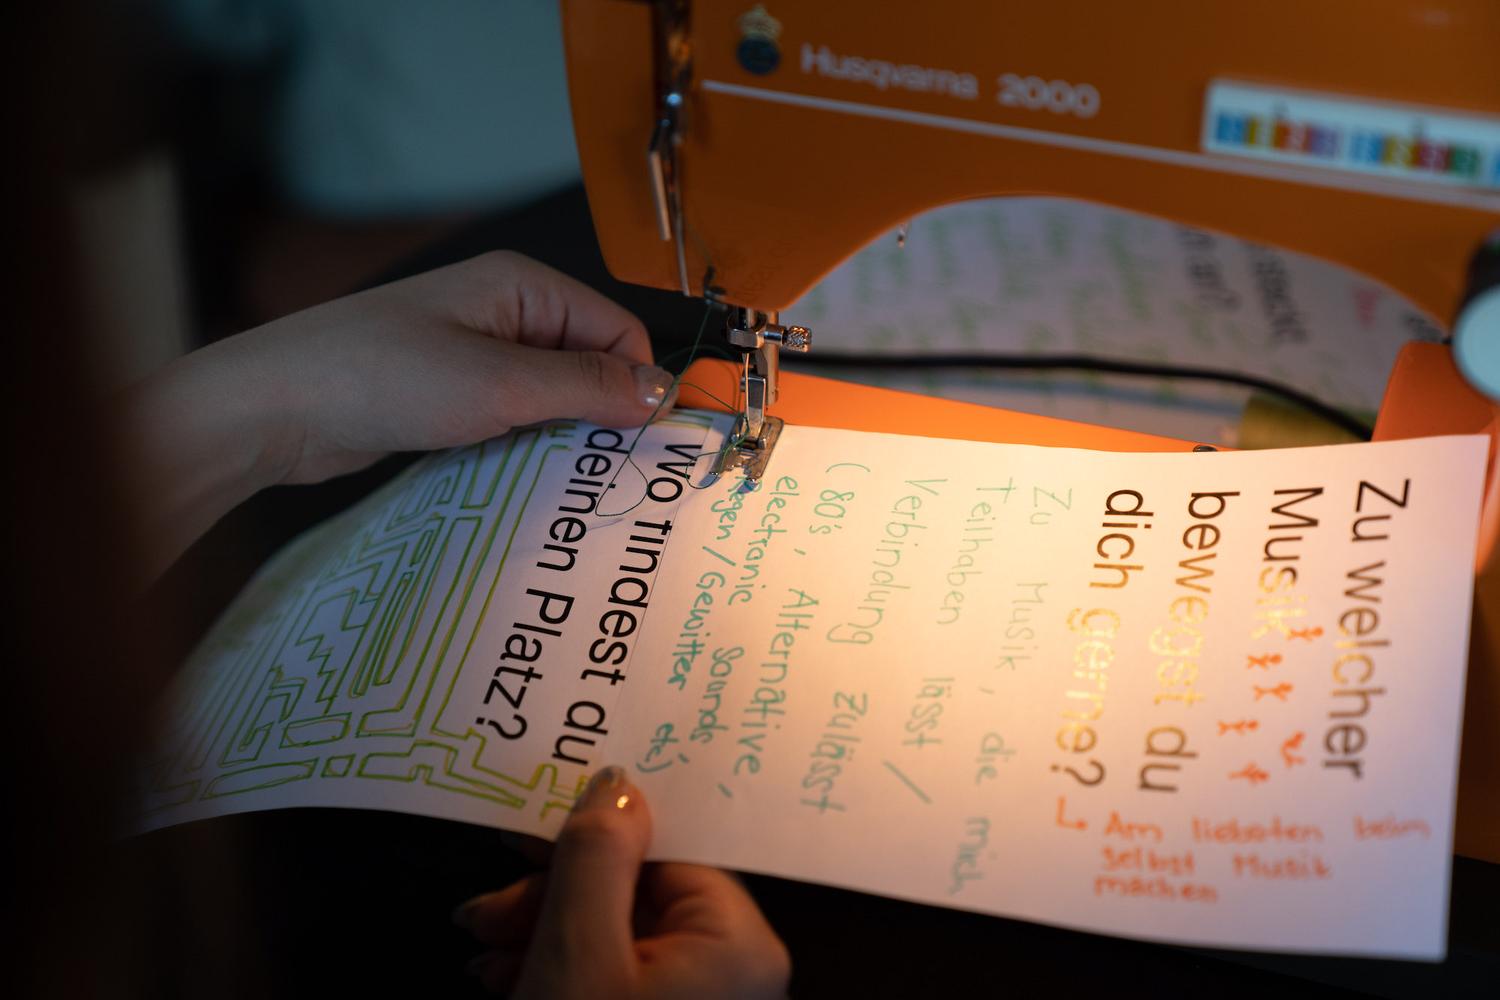 Husqvarna 2000
Zu welcher
Musik
bewegst du
dich gerne?
Am liebsten beim
selbst Musik
machen
Zu Musik, die mich
Teilhaben lässt /
Verbindung zulässt
(80's, Alternative,
electronic sounds,
Regen/Gewitter etc)
Wo findest du
deinen Platz?